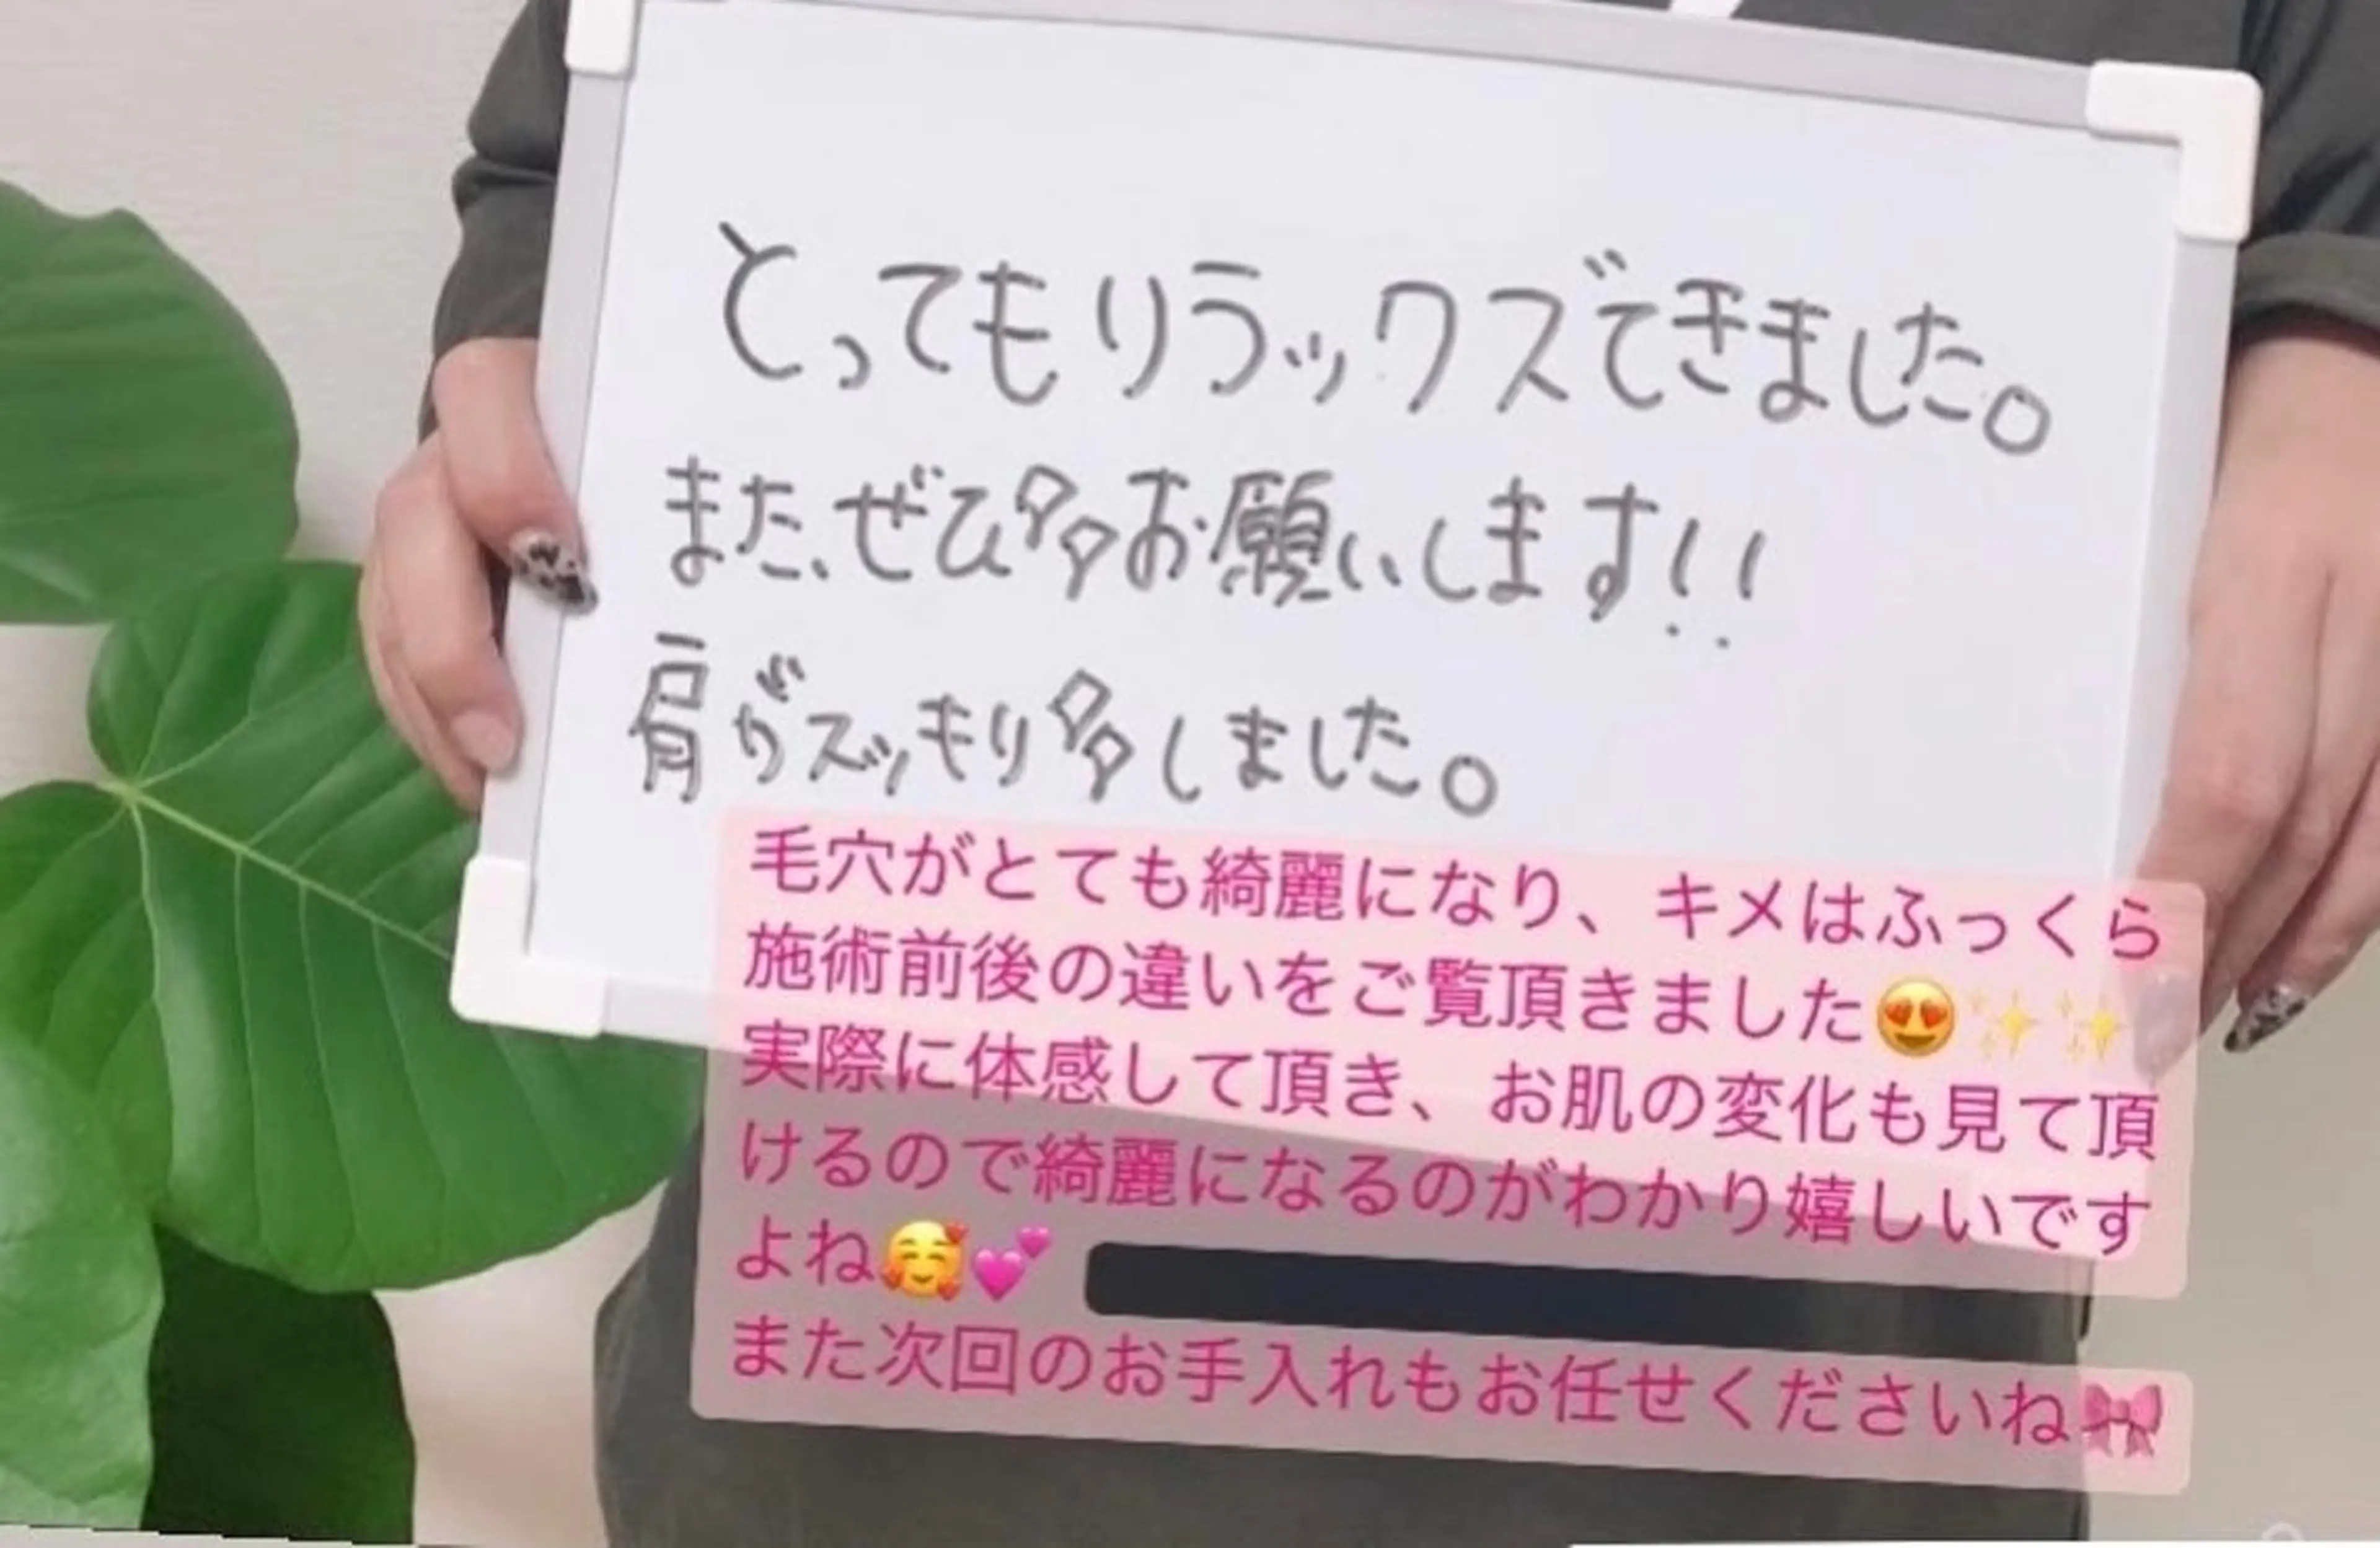 とってもリラックスできました。
また、ぜひ多お願いします!!
肩がスッキリ多しました。
毛穴がとても綺麗になり、キメはふっくら
施術前後の違いをご覧頂きました😍✨✨
実際に体感して頂き、お肌の変化も見て頂
けるので綺麗になるのがわかり嬉しいです
よね🥰💕
また次回のお手入れもお任せくださいね🎀